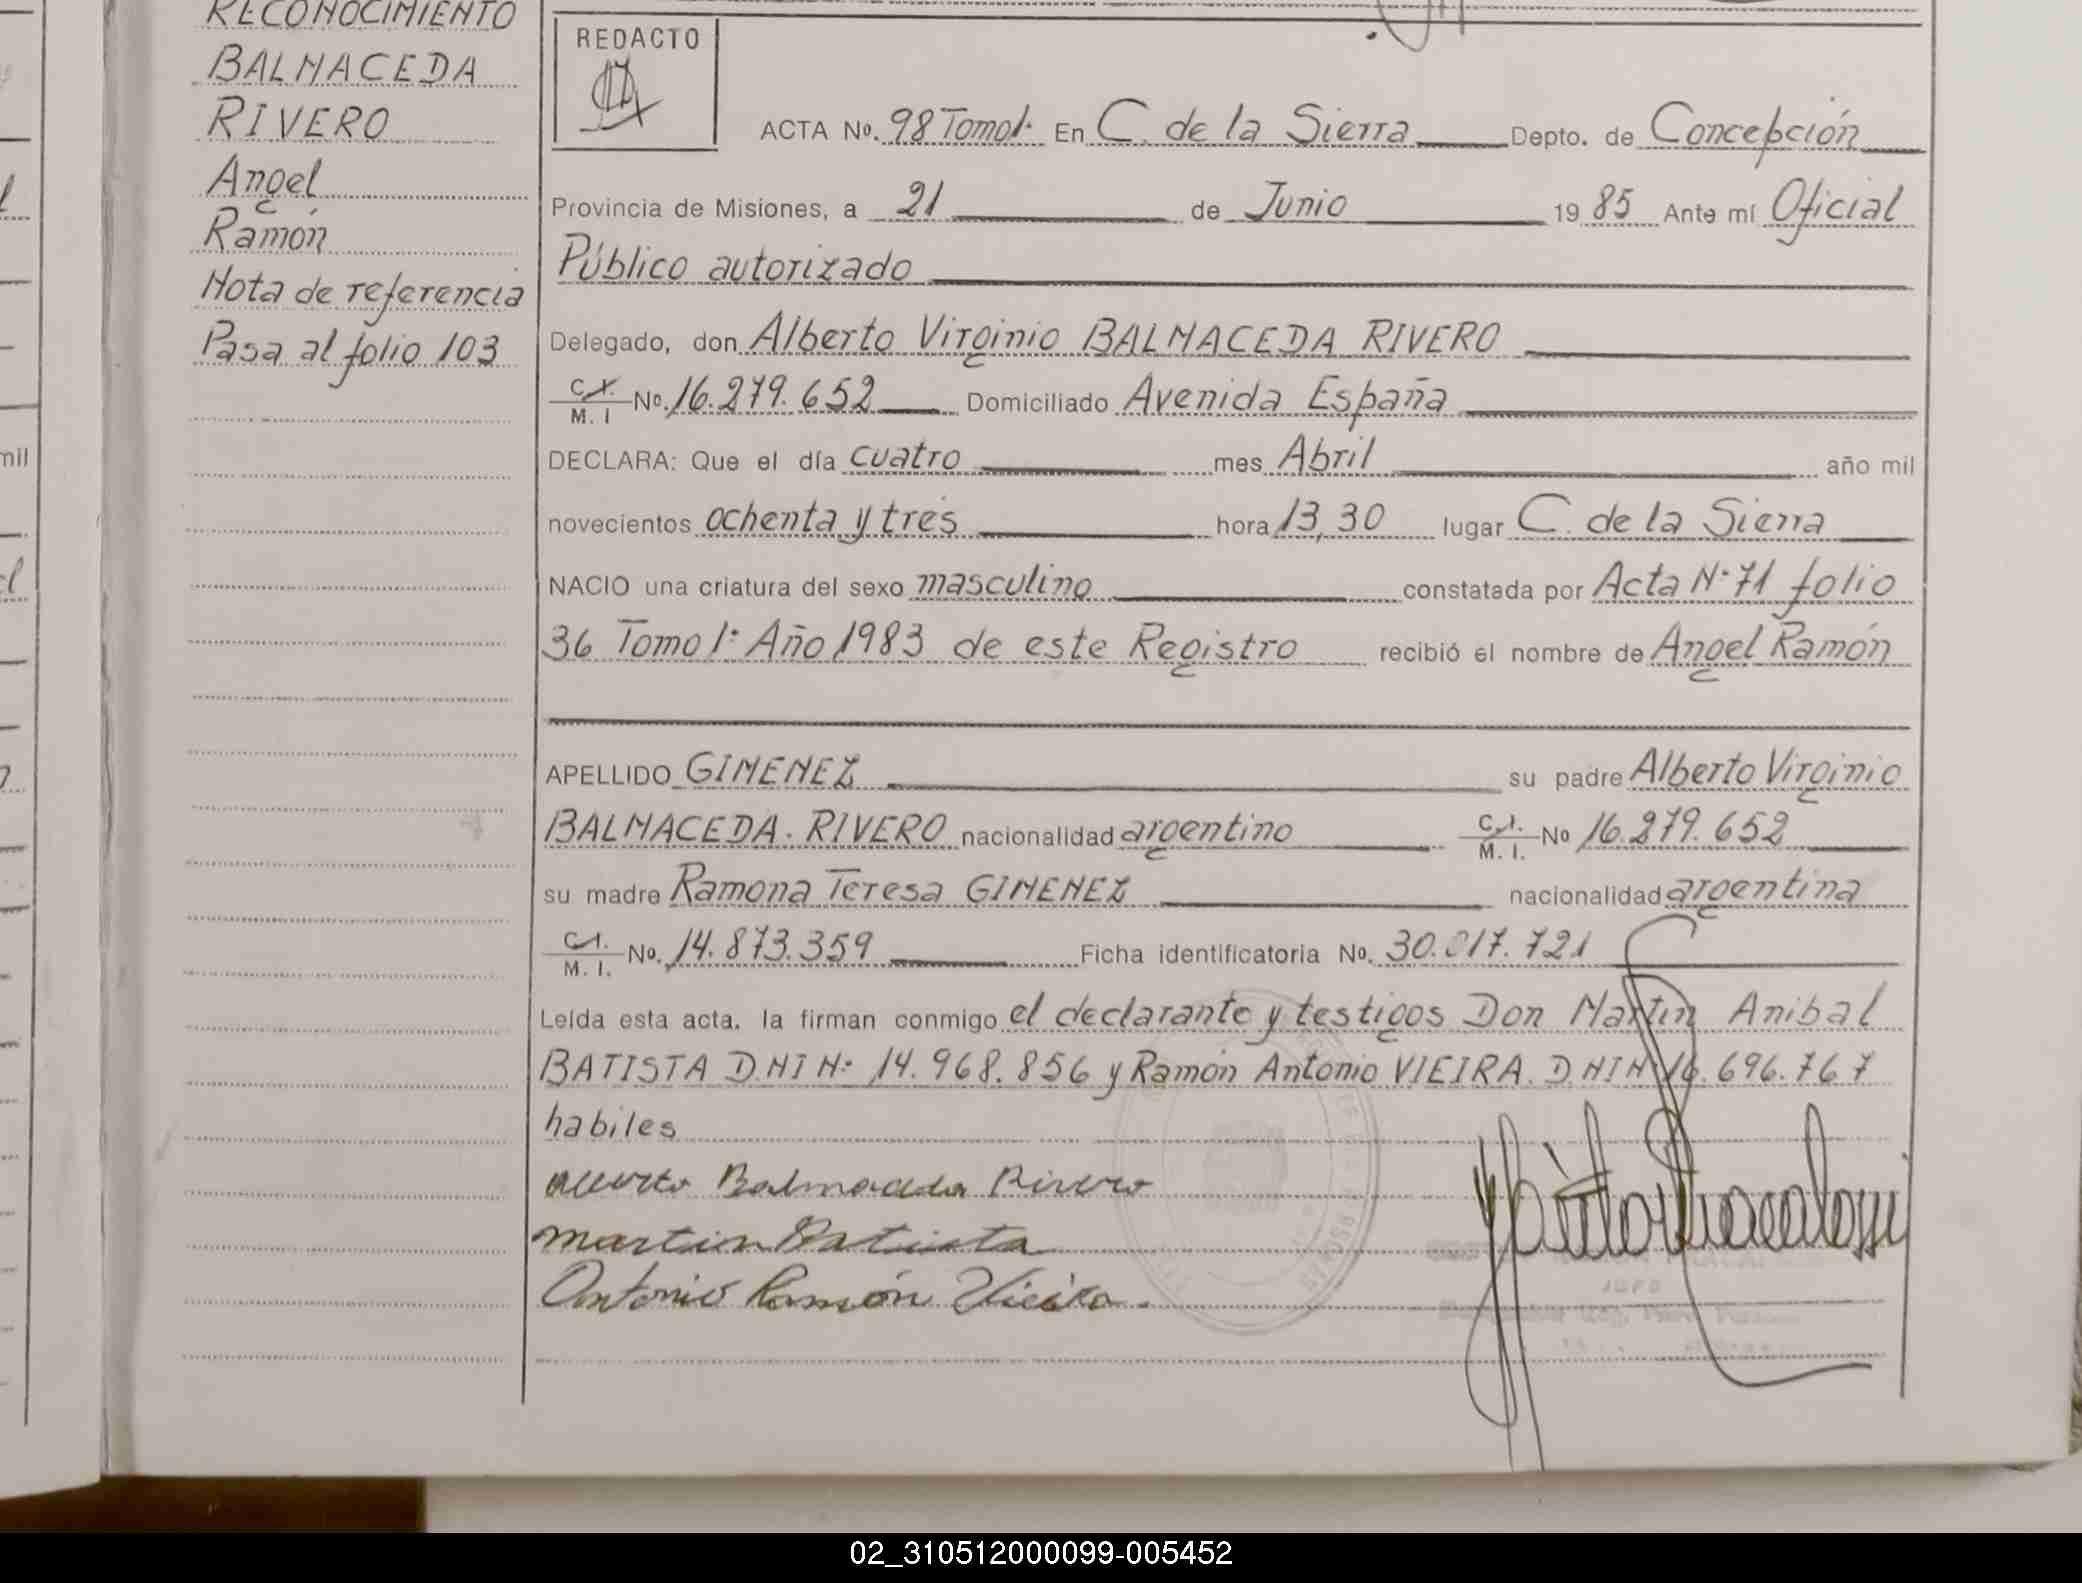 RECONOCIMIENTO
BALMACEDA
RIVERO
Angel
Ramón
Nota de referencia
Pasa al folio 103
REDACTO
ACTA No. 98 Tomo 1° En C. de la Sierra Depto. de Concepción
Provincia de Misiones, a 21 de Junio 19 85 Ante mí Oficial
Público autorizado
Delegado, don Alberto Virginio BALMACEDA RIVERO
C.I. M. I No. 16.279.652 Domiciliado Avenida España
DECLARA: Que el día cuatro mes Abril año mil
novecientos ochenta y tres hora 13,30 lugar C. de la Sierra
NACIO una criatura del sexo masculino constatada por Acta N° 71 folio
36 Tomo 1° Año 1983 de este Registro recibió el nombre de Angel Ramón
APELLIDO GIMENEZ su padre Alberto Virginio
BALMACEDA. RIVERO nacionalidad argentino C.I. M. I. No 16.279.652
su madre Ramona Teresa GIMENEZ nacionalidad argentina
C.I. M. I. No. 14.873.359 Ficha identificatoria No. 30.017.721
Leída esta acta, la firman conmigo el declarante y testigos Don Martin Anibal
BATISTA D.NI N° 14.968.856 y Ramón Antonio VIEIRA. D NI N° 16.696.767
habiles
Alberto Balmaceda Rivero
Martin Batista
Antonio Ramón Vieira.
mil
02_310512000099-005452